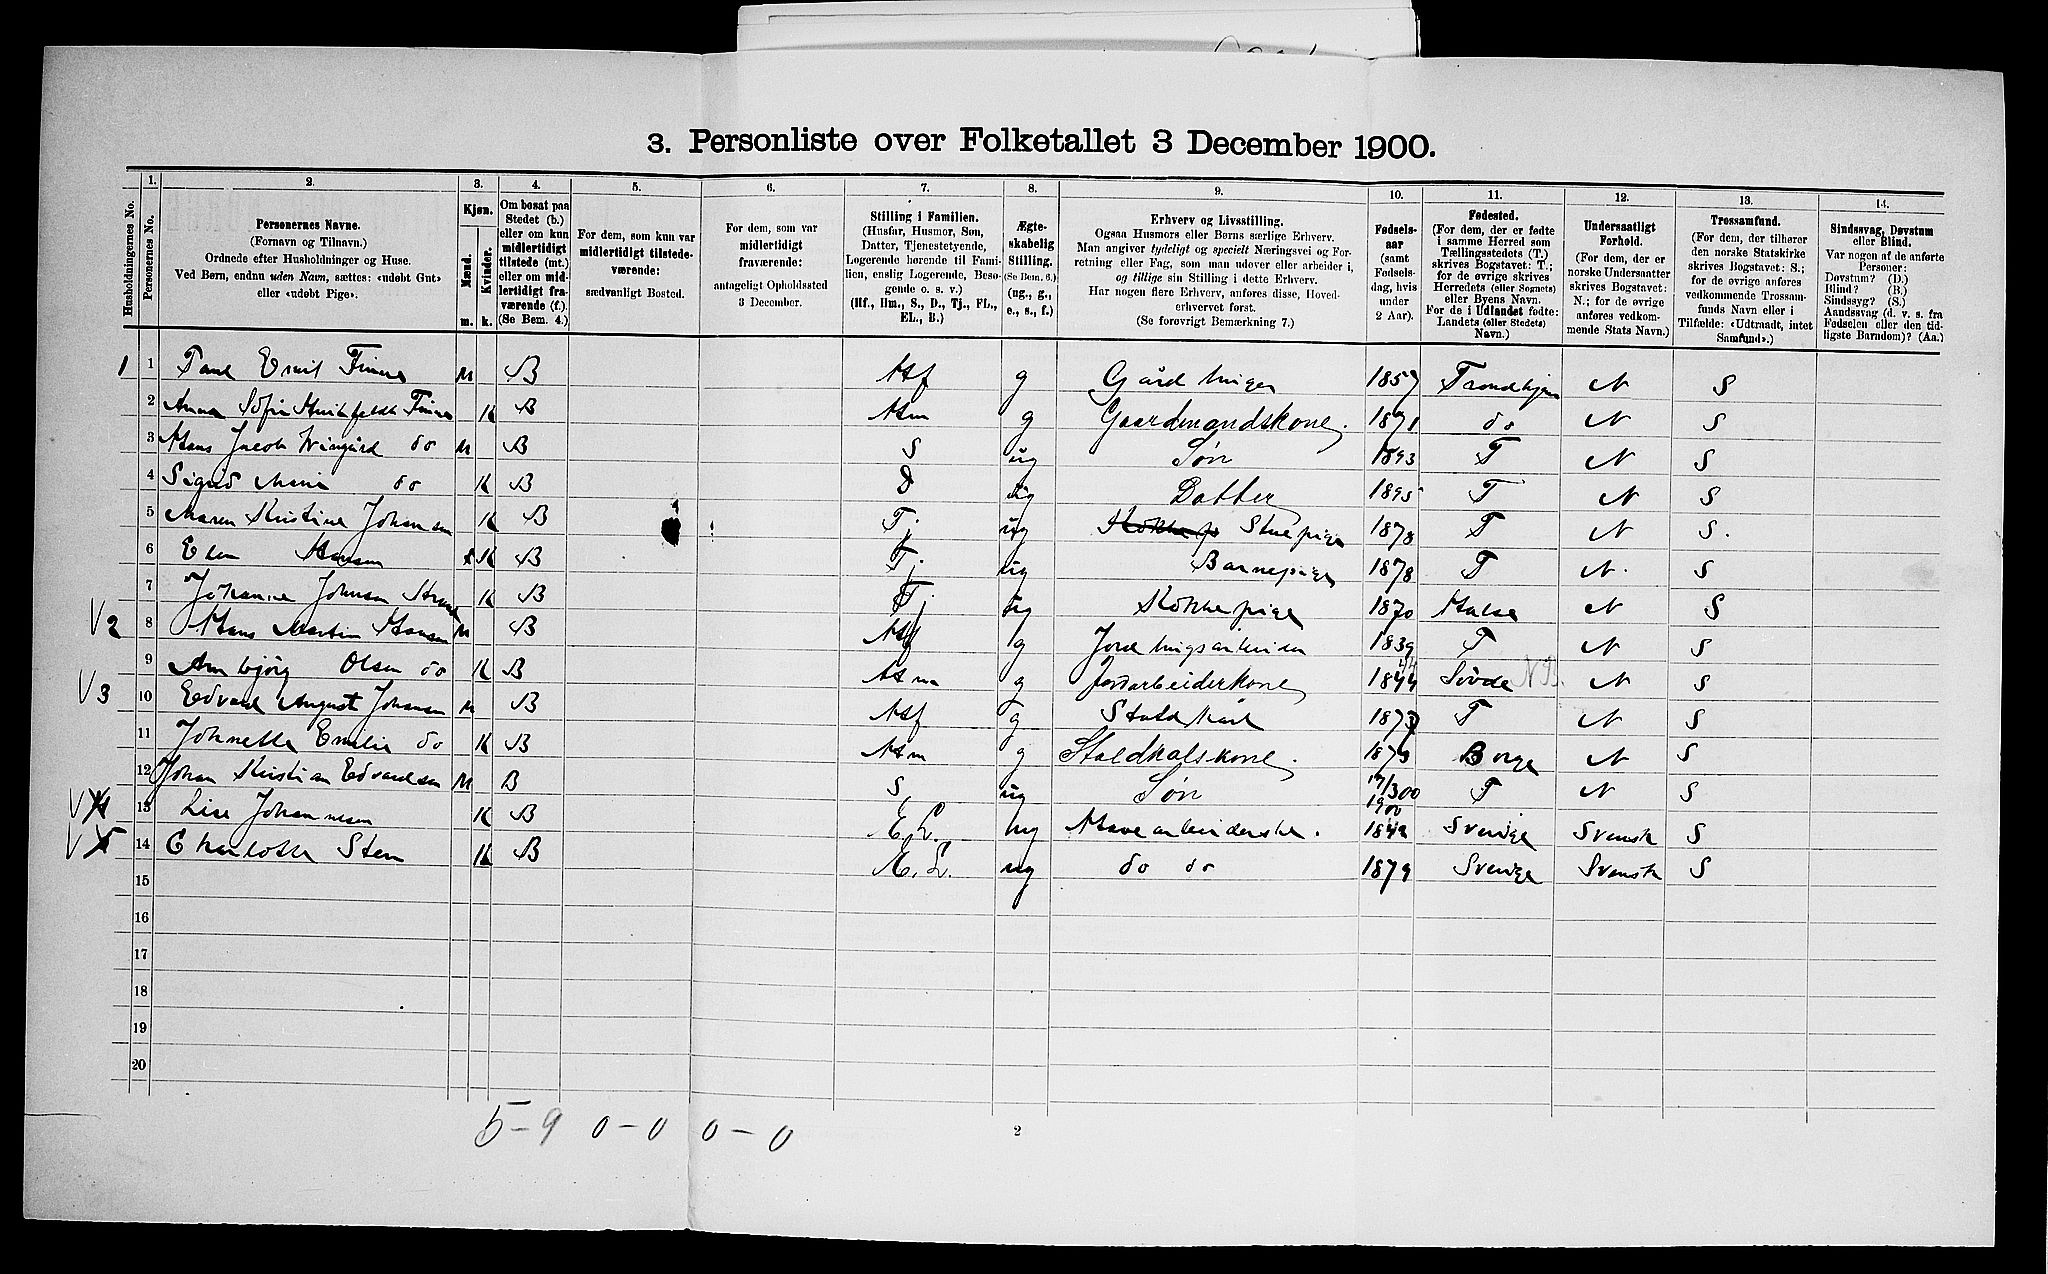 3. Personliste over Folketallet 3 December 1900.
Husholdningernes No.
1. Personernes No.
2. Personernes Navne.
(Fornavn og Tilnavn.)
Ordnede efter Husholdninger og Huse.
Ved Børn, endnu uden Navn, sættes: «udøbt Gut»
eller «udøbt Pige».
3. Kjøn.
Mænd. m.
Kvinder. k.
4. Om bosat paa
Stedet (b.)
eller om kun
midlertidigt
tilstede (mt.)
eller om mid-
lertidigt fra-
værende (f.)
(Se Bem. 4.)
5. For dem, som kun var
midlertidigt tilstede-
værende:
sædvanligt Bosted.
6. For dem, som var
midlertidigt
fraværende:
antageligt Opholdssted
3 December.
7. Stilling i Familien.
(Husfar, Husmor, Søn,
Datter, Tjenestetyende,
Logerende hørende til Fami-
lien, enslig Logerende, Besø-
gende o. s. v.)
(Hf., Hm., S., D., Tj., FL.,
EL., B.)
8. Ægte-
skabelig
Stilling.
(Se Bem. 6.)
(ug., g.,
e., s., f.)
9. Erhverv og Livsstilling.
Ogsaa Husmors eller Børns særlige Erhverv.
Man angiver tydeligt og specielt Næringsvei og For-
retning eller Fag, som man udøver eller arbeider i,
og tillige sin Stilling i dette Erhverv.
Har nogen flere Erhverv, anføres disse, Hoved-
erhvervet først.
(Se forøvrigt Bemærkning 7.)
10. Fødsels-
aar
(samt
Fødsels-
dag, hvis
under
2 Aar).
11. Fødested.
(For dem, der er fødte
i samme Herred som
Tællingsstedets (T.)
skrives Bogstavet: T.;
for de øvrige skrives
Herredets (eller Sognets)
eller Byens Navn.
For de i Udlandet fødte:
Landets (eller Stedets)
Navn.)
12. Undersaatligt
Forhold.
(For dem, der er
norske Undersaatter
skrives Bogstavet:
N.; for de øvrige
anføres vedkom-
mende Stats Navn.)
13. Trossamfund.
(For dem, der tilhører
den norske Statskirke
skrives Bogstavet: S.;
for de øvrige anføres
vedkommende Trossam-
funds Navn eller i
Tilfælde: «Udtraadt, intet
Samfund».)
14. Sindssvag, Døvstum
eller Blind.
Var nogen af de anførte
Personer:
Døvstum? (D.)
Blind? (B.)
Sindssyg? (S.)
Aandssvag (d. v. s. fra
Fødselen eller den tid-
ligste Barndom)? (Aa.)
1 1 Emil Finne M B Hf g 1857 Trondhjem N S
2 Anna Sofie Finne K B Hm g Gaardmandskone. 1871 do N S
3 Hans Jacob do M B S ug Søn 1893 T N S
4 Sigrid Marie do K B D ug Datter 1895 T N S
5 Maren Kristine Johansen K B Tj. ug Stuepige 1878 T N S.
6 Elen Hansen K B Tj. ug Barnepige 1878 T N. S
7 Johanne Johnsen K B Tj ug Kokkepige 1870 Halsa N S
V2 8 Hans Martin Hansen M B Hf g 1839 T N S
9 Olsen do K B Hm g Jordarbeiderkone 1844 N.B. N S
V3 10 Edvard August Johansen M B Hf g Staldkarl 1873 T N S
11 Johnette Emilie do K B Hm g Staldkalskone. 1873 Borge N S
12 Johan Kristian Edvardsen M B S ug Søn 1900 T N S
13 Lise Johannesen K B E.L. ug Havearbeiderske. Sverige Svensk S
14 Charlotte Sten K B E.L. ug do do 1879 Sverige Svensk S
15
16
17
18
19
20
5-9 0-0 0-0
2